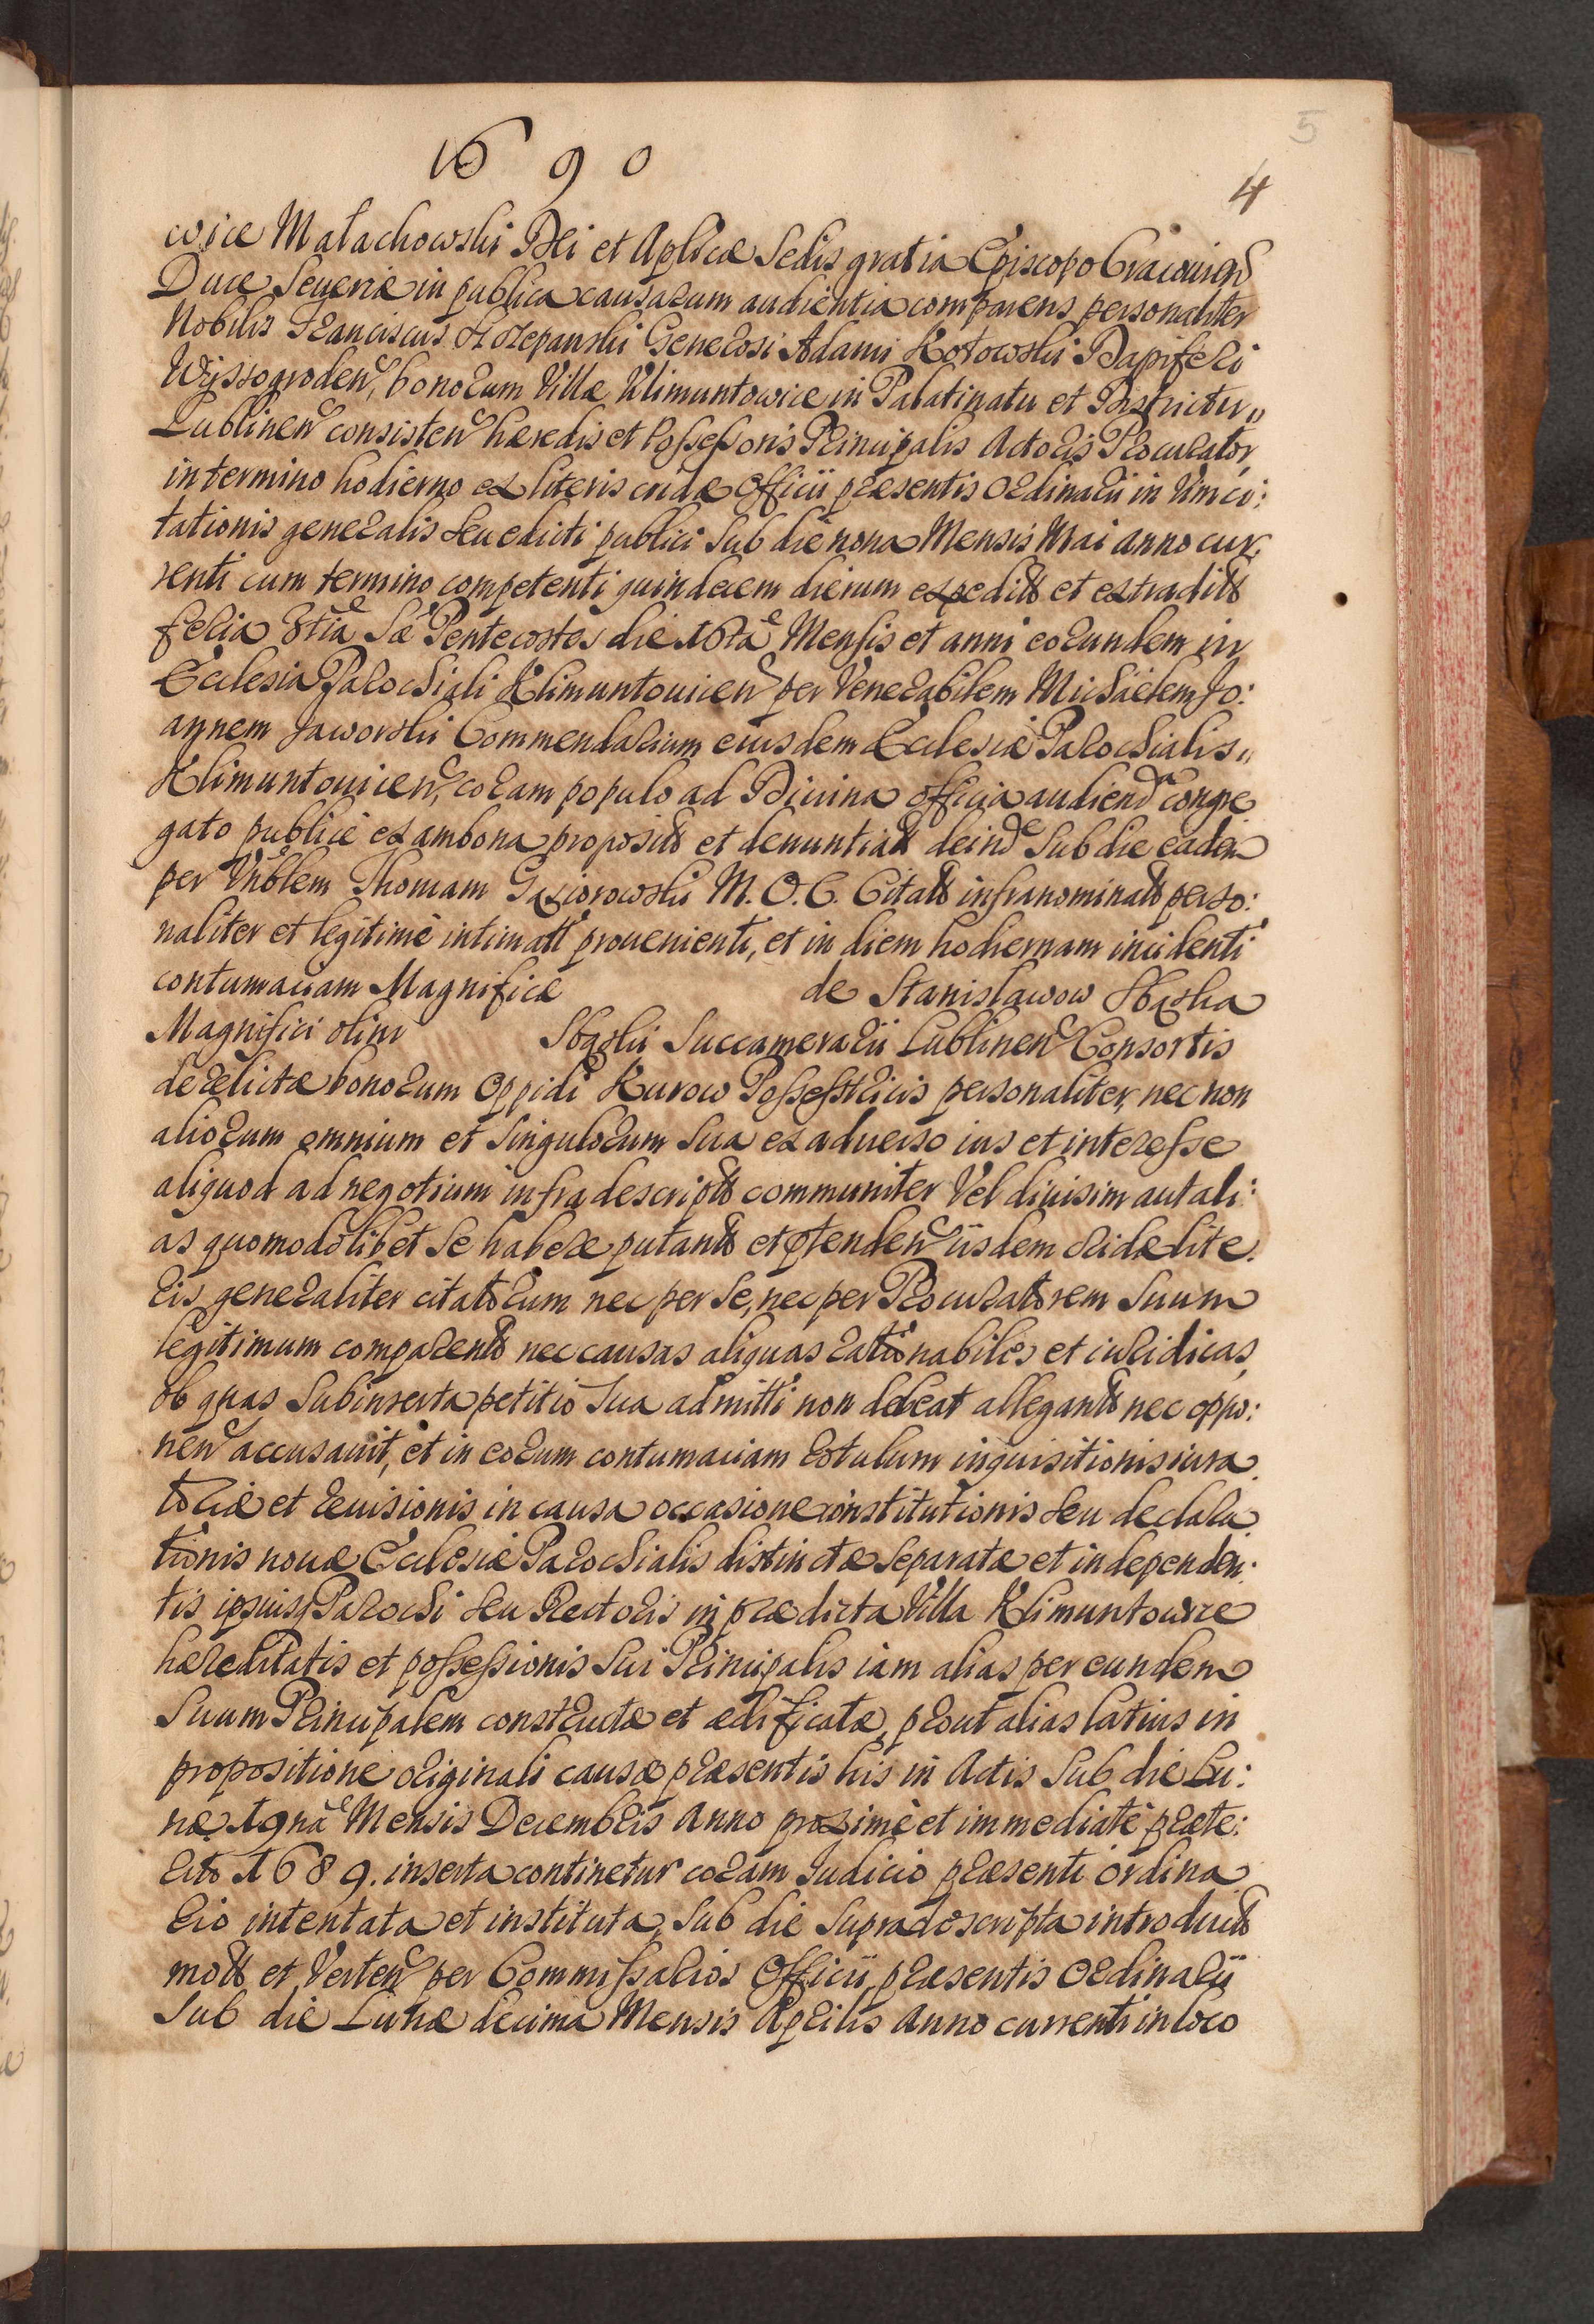 5
1690
4
wice Małachowski Dei et Aplicæ Sedis gratia Episcopo Cracovien
Duce Seueriæ in publica causarum audientia comparens personaliter
Nobilis Franciscus Szczepanski Generosi Adami Kotowski Dapiferi
Wyssogroden, bonorum Villæ Klimuntowice in Palatinatu et Districtu
Lublinen consisten hæredis et Possessoris Principalis Actoris Procurator,
in termino hodierno ex literis cridæ Officii præsentis Ordinarii in vim ci:
tationis generalis seu edicti publici sub die nona Mensis Mai anno cur,
renti cum termino competenti quindecem dierum expedit et extradit
feria 3tia Sæ Pentecostes die 16ta Mensis et anni eorundem in
Ecclesia Parochiali Klimuntouicen per Venerabilem Michaelem Jo:
annem Jaworski Commendarium eiusdem Ecclesiæ Parochialis
Klimuntouicen, coram populo ad Diuina officia audiend congre
gato publicè ex ambona proposit et denuntiat deinde sub die eadem
per Vnblem Thomam Gąsiorowski M. O. C. Citatt infranominatt perso:
naliter et legitimè intimatt prouenienti, et in diem hodiernam incidenti
contumaciam Magnificæ de Stanisławow Zbąska
Magnifici olim Zbąski Succamerarii Lublinen Consortis
derelictæ bonorum Oppidi Kurow Possesstricis personaliter, nec non
aliorum omnium et singulorum sua ex aduerso ius et interesse
aliquod ad negotium infradescript communiter vel diuisim aut ali:
as quomodolibet se habere putant et ptenden iisdem cridæ lite.
ris generaliter citatorum nec per se, nec per Procuratorem suum
legitimum comparent nec causas aliquas rationabiles et iuridicas,
ob quas subinserta petitio sua admitti non debeat allegant nec oppo:
nen accusauit, et in eorum contumaciam rotulum inquisitionis iura
toriæ et reuisionis in causa occasione constitutionis seu declara
tionis nouæ Ecclesiæ Parochialis distinctæ separatæ et independen:
tis ipsiusq Parochi seu Rectoris in prædicta Villa Klimuntowice
hæreditatis et possessionis sui Principalis iam alias per eundem
suum Principalem constructæ et ædificatæ, prout alias latius in
propositione originali causæ præsentis his in Actis sub die Lu:
næ 19na Mensis Decembris Anno proximè et immediatè præte:
rito 1689. inserta continetur coram Judicio præsenti ordina
rio intentata et instituta, sub die supradescripta introduct
mott et verten per Commissarios Officii præsentis Ordinarii
sub die Lunæ decima Mensis Aprilis Anno currenti in loco